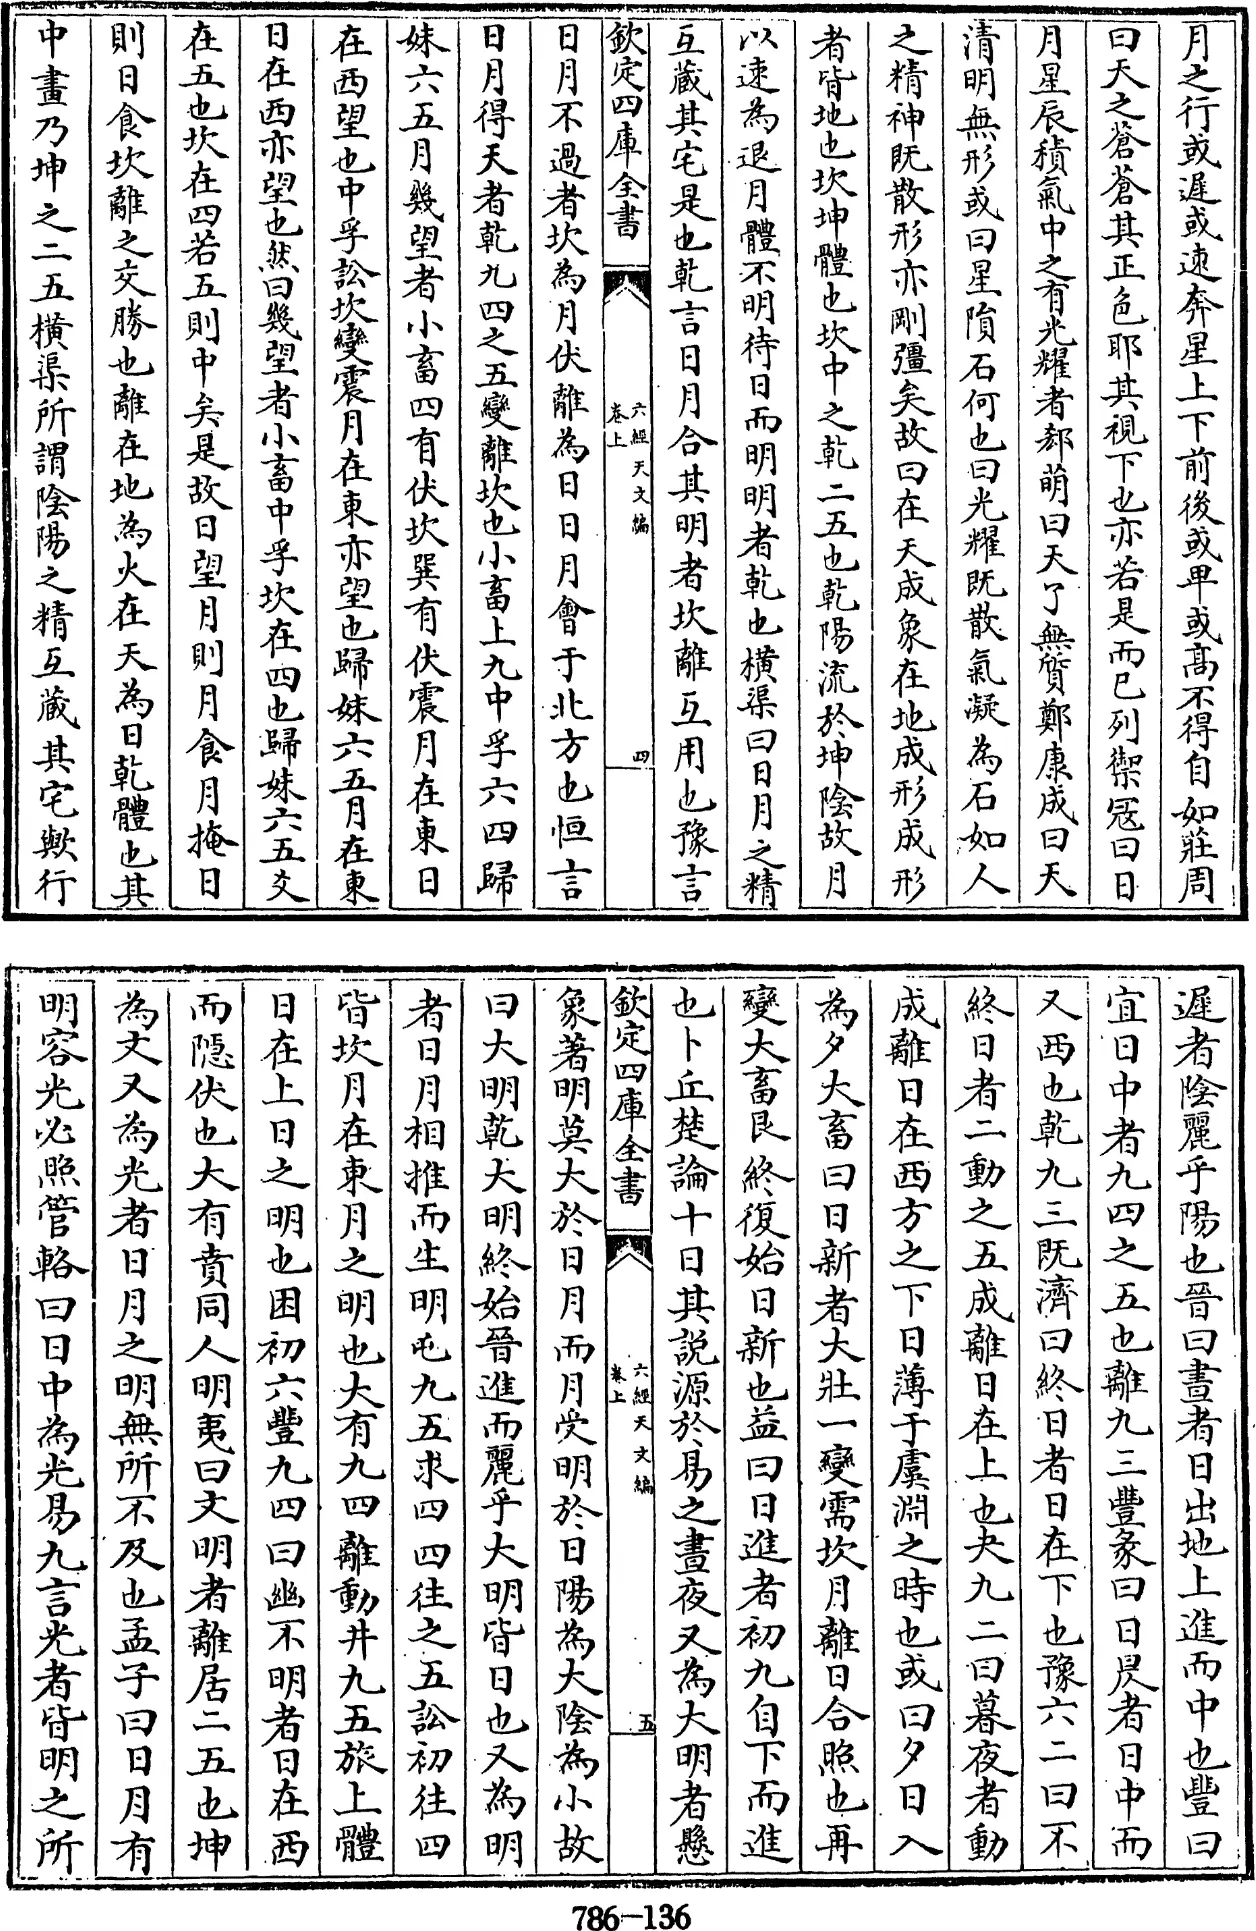 月之行或遲或速奔星上下前後或卑或髙不得自如莊周
曰天之蒼蒼其正色耶其視下也亦若是而已列禦冦曰日
月星辰積氣中之有光耀者郗萌曰天了無質鄭康成曰天
清明無形或曰星隕石何也曰光耀既散氣凝為石如人
之精神既散形亦剛彊矣故曰在天成象在地成形成形
者皆地也坎坤體也坎中之乾二五也乾陽流於坤隂故月
以速為退月體不明待日而明明者乾也橫渠曰日月之精
互藏其宅是也乾言日月合其明者坎離互用也豫言
欽定四庫全書
六經天文編
卷上
四
日月不過者坎為月伏離為日日月會于北方也恒言
日月得天者乾九四之五變離坎也小畜上九中孚六四歸
妹六五月幾望者小畜四有伏坎巽有伏震月在東日
在西望也中孚訟坎變震月在東亦望也歸妹六五月在東
日在西亦望也然曰幾望者小畜中孚坎在四也歸妹六五爻
在五也坎在四若五則中矣是故日望月則月食月掩日
則日食坎離之交勝也離在地為火在天為日乾體也其
中畫乃坤之二五橫渠所謂陰陽之精互藏其宅歟行
遲者陰麗乎陽也晉曰晝者日出地上進而中也豐曰
宜日中者九四之五也離九三豐彖曰日昃者日中而
又西也乾九三既濟曰終日者日在下也豫六二曰不
終日者二動之五成離日在上也夬九二曰暮夜者動
成離日在西方之下日薄于虞淵之時也或曰夕日入
為夕大畜曰日新者大壯一變需坎月離日合照也再
變大畜艮終復始日新也益曰日進者初九自下而進
也卜丘楚論十日其説源於易之晝夜又為大明者懸
欽定四庫全書
六經天文編
卷上
五
象著明莫大於日月而月受明於日陽為大陰為小故
曰大明乾大明終始晉進而麗乎大明皆日也又為明
者日月相推而生明屯九五求四四往之五訟初往四
皆坎月在東月之明也大有九四離動井九五旅上體
日在上日之明也困初六豐九四曰幽不明者日在西
而隱伏也大有賁同人明夷曰文明者離居二五也坤
為文又為光者日月之明無所不及也孟子曰日月有
明容光必照管輅曰日中為光易九言光者皆明之所
786-136